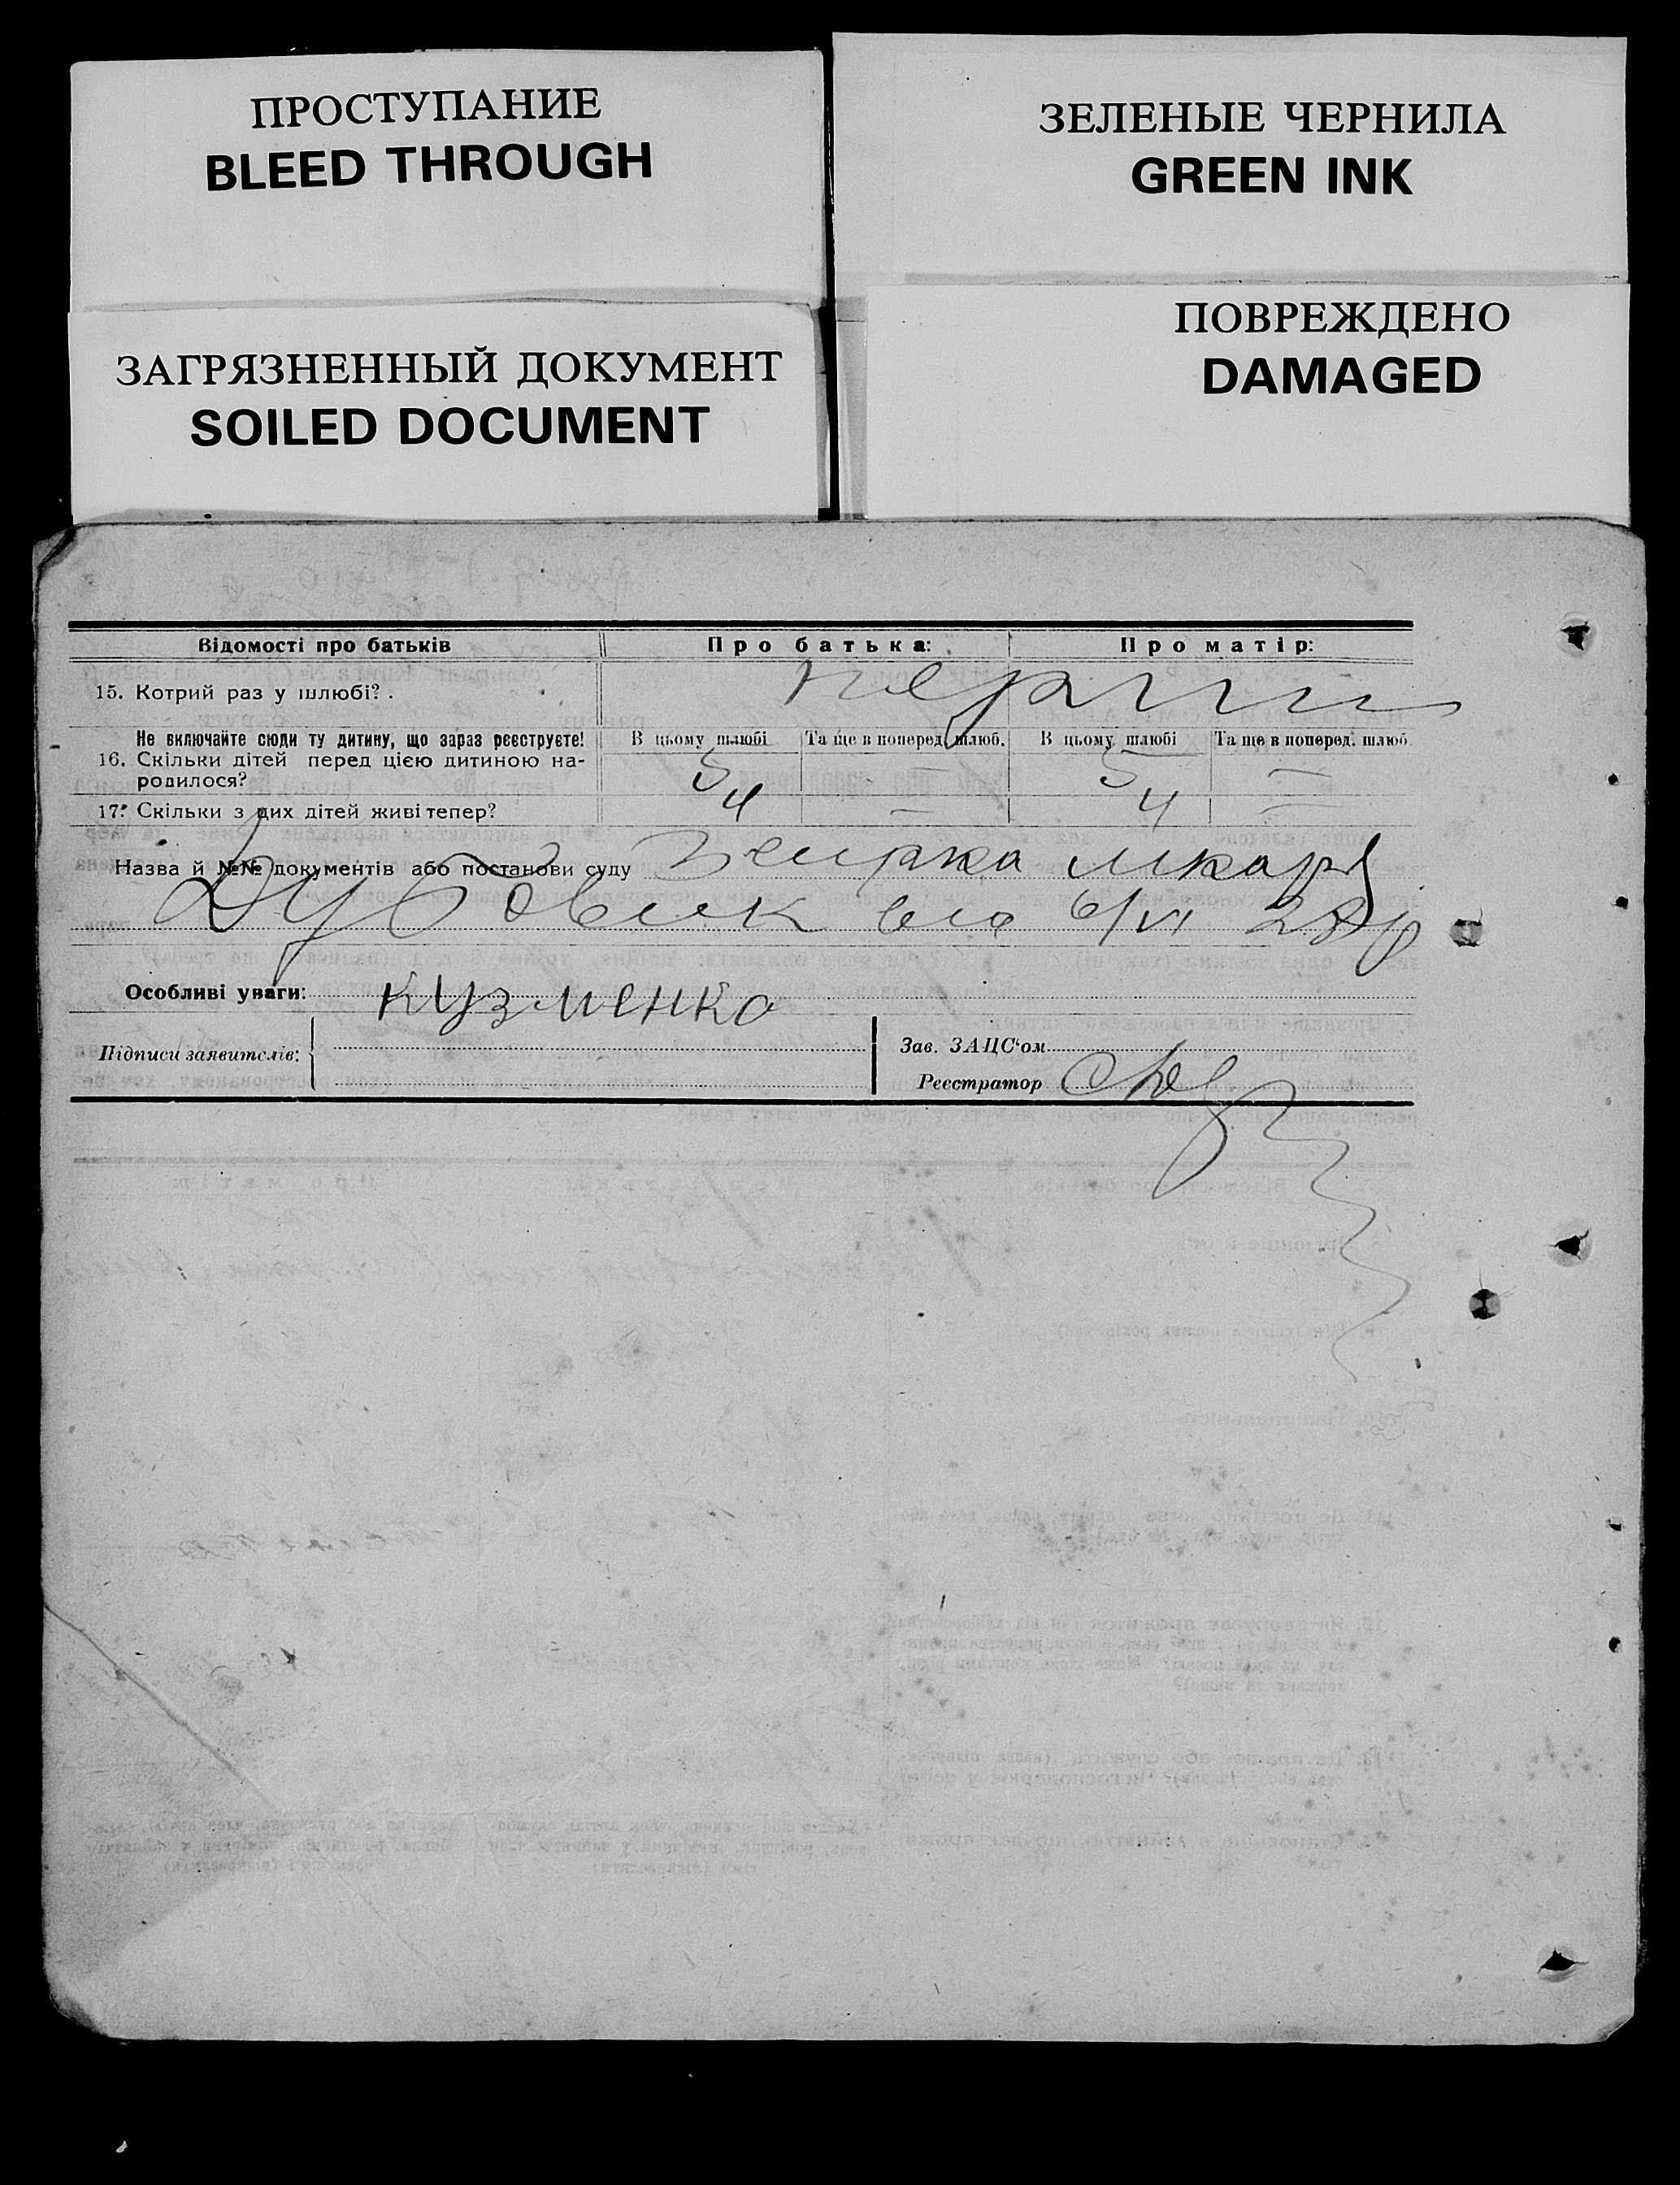 ПРОСТУПАНИЕ
BLEED THROUGH
ЗЕЛЕНЫЕ ЧЕРНИЛА
GREEN INK
ЗАГРЯЗНЕННЫЙ ДОКУМЕНТ
SOILED DOCUMENT
ПОВРЕЖДЕНО
DAMAGED
Відомості про батьків Про батька: Про матір:
15. Котрий раз у шлюбі? перший
Не включайте сюди ту дитину, що зараз реєструєте! В цьому шлюбі Та ще в поперед. шлюб. В цьому шлюбі Та ще в поперед. шлюб.
16. Скільки дітей перед цією дитиною на-
родилося? 5 — 5 —
17. Скільки з цих дітей живі тепер? 4 — 4 —
Назва й №№ документів або постанови суду
від 6/VI 28 р
Особливі уваги: Кузменко
Підписи заявителів:
Зав. ЗАЦС'ом
Реєстратор